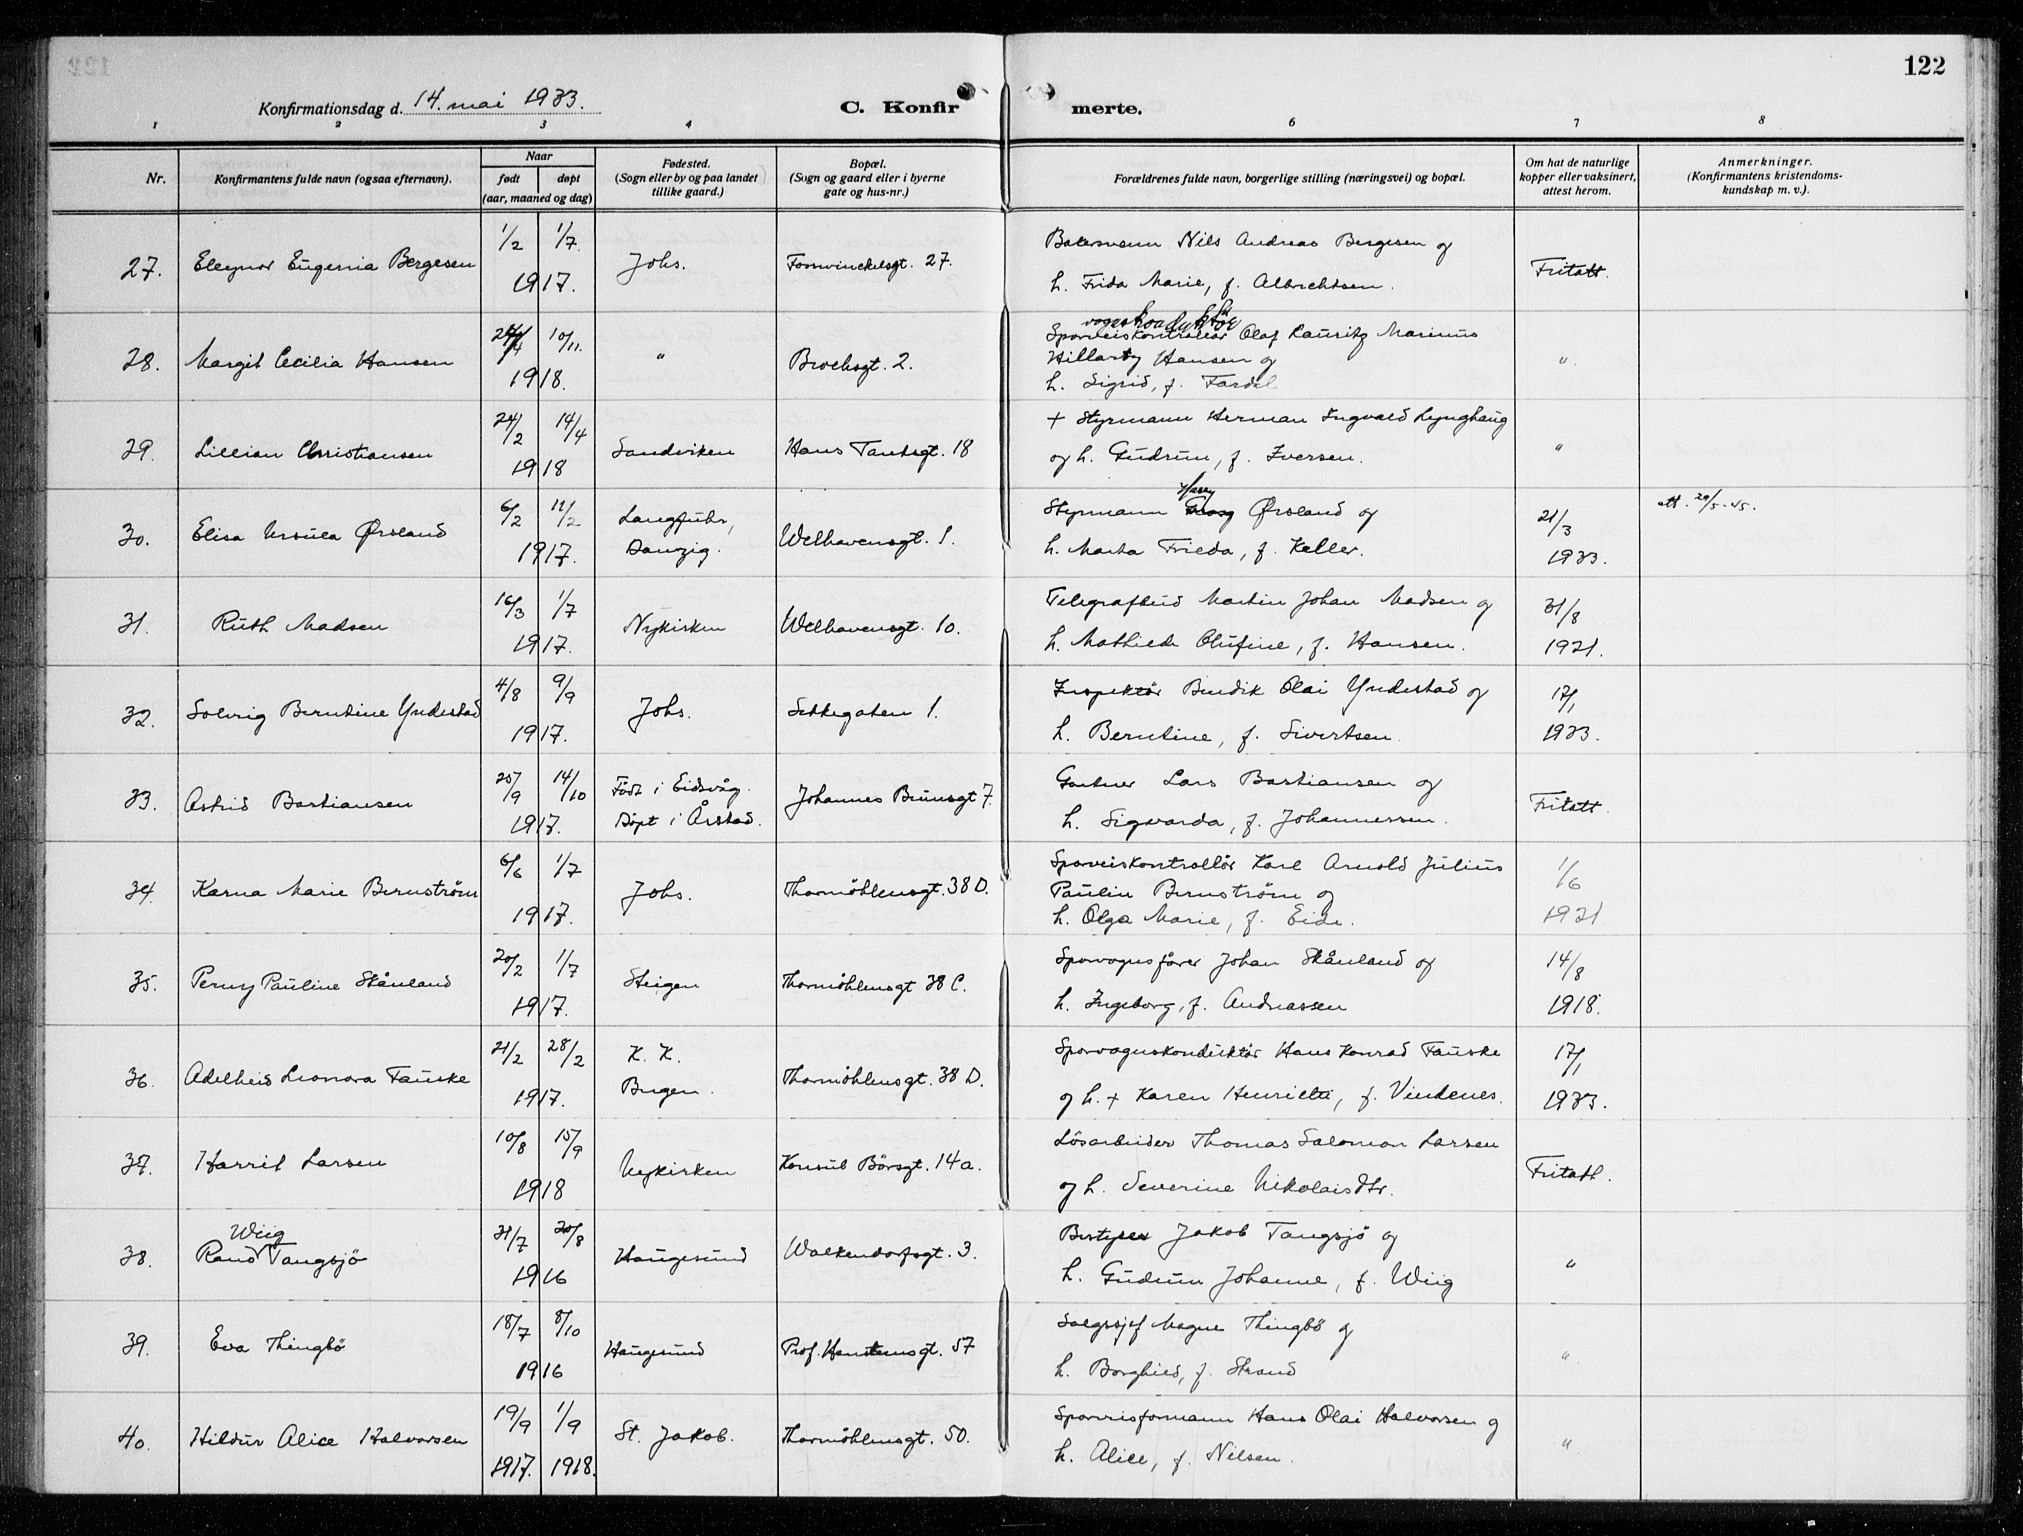 122
Konfirmationsdag d. 14. mai 1933.
C. Konfirmerte.
1 2 3 4 6 7 8
Nr.
Konfirmantens fulde navn (ogsaa efternavn).
Naar
født døpt
(aar, maaned og dag)
Fødested.
(Sogn eller by og paa landet
tillike gaard.)
Bopæl.
(Sogn og gaard eller i byerne
gate og hus-nr.)
Forældrenes fulde navn, borgerlige stilling (næringsvei) og bopæl.
Om hat de naturlige
kopper eller vaksinert,
attest herom.
Anmerkninger.
(Konfirmantens kristendoms-
kundskap m. v.).
27. Eleynor Eugenia Bergesen 1/2 1/7 1917. Johs. Fosswinckelsgt. 27.
Bakersvenn Nils Andreas Bergesen og
h. Frida Marie, f. Albrechtsen. Fritatt.
28. Margit Cecilia Hansen 10/11. 1918. " Brochsgt. 2.
vognkonduktör
Sporveiskontrollör Olaf Lauritz Marinus
Hansen og
h. Sigrid, f. "
29. Lillian Christiansen 24/2 14/4 1918 Sandviken Hans Tanksgt. 18
+ Styrmann Herman Ingvald Lynghaug
og h. Gudrun, f. Iversen. "
30. Elisa Ursula Ørsland 6/2 11/2 1917. Langfuhr,
Danzig. Welhavensgt. 1.
Harry
Styrmann Ørsland og
h. Marta Frieda, f. Keller. 21/3
1933. att. 29/5-45.
31. Ruth Madsen 16/3 1/7 1917. Nykirken Welhavensgt. 10.
Telegrafbud Martin Johan Madsen og
h. Mathilde Olufine, f. Hansen. 31/8
1921.
32. Solveig Berntine Yndestad 4/8 9/9 1917. Johs. Settegaten 1.
Inspektör Bendik Olai Yndestad og
h. Berntine, f. Sivertsen. 17/1
1933.
33. Astrid Bastiansen 25/9 14/10 1917. Född i Eidsvåg.
Döpt i Årstad. Johannes Brunsgt 7.
Gartner Lars Bastiansen og
h. Sigvarda, f. Johannessen. Fritatt.
34. Karna Marie Bernström 6/6 1/7 1917. Johs. Thormöhlensgt. 38 D.
Sporveiskontrollör Karl Arnold Julius
Paulin Bernström og
h. Olga Marie, f. Eide. 1/6
1921
35. Perny Pauline Skånland 20/2 1/7 1917. Steigen Thormöhlensgt 38 C.
Sporvognsförer Johan Skånland og
h. Ingeborg, f. Andreassen 14/8
1918.
36. Adelheid Leonora Fauske 21/2 28/2 1917. K. K.
Bergen. Thormöhlensgt. 38 D.
Sporvognskonduktör Hans Konrad Fauske
og h. + Karen Henrietta, f. Vindenes. 17/1
1933.
37. Harrit Larsen 10/8 15/9 1918 Nykirken Konsul Börsgt. 14a.
Lösarbeider Thomas Salomon Larsen
og h. Severine Nikolaisdtr. Fritatt.
Wiig
38. Rand Tangsjö 31/7 20/8 1916 Haugesund Walkendorfsgt. 3.
Bestyrer Jakob Tangsjö og
h. Gudrun Johanne, f. Wiig "
39. Eva Thingbö 18/7 8/10 1916 Haugesund Prof. Hansteensgt. 57
Salgssjef Magne Thingbö og
h. Borghild, f. Strand "
40. Hildur Alice Halvorsen 19/9 1/9 1917. 1918. St. Jakob. Thormöhlensgt. 50.
Sporveisformann Hans Olai Halvorsen og
h. Alice, f. Nilsen. "